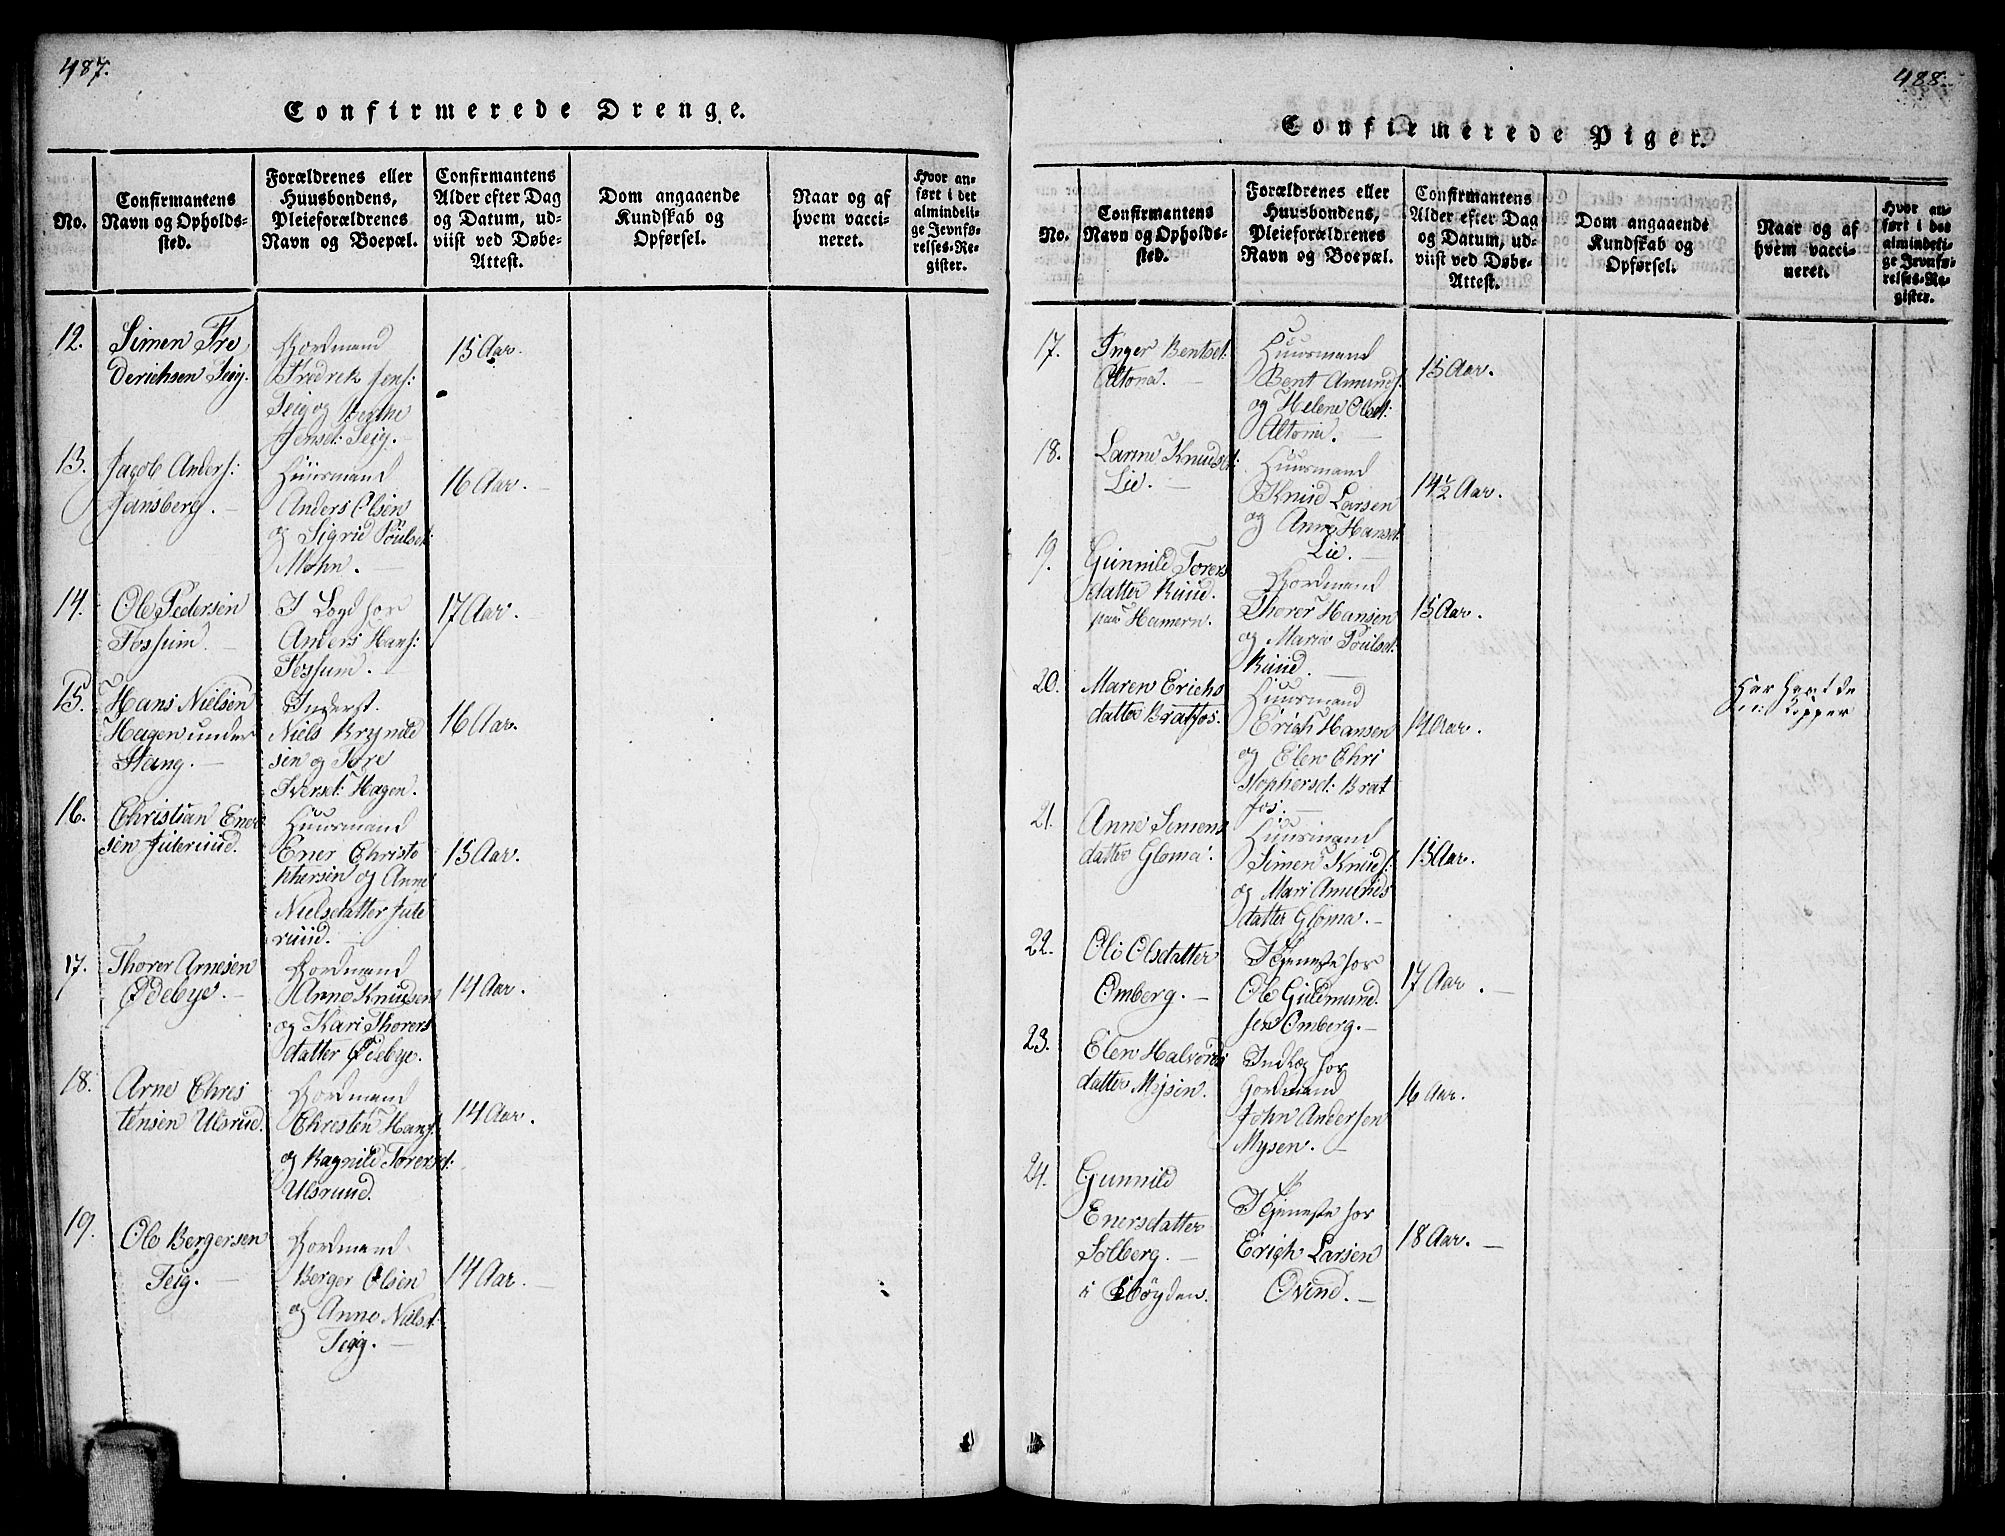 487.
Confirmerede Drenge.
No.
Confirmantens
Navn og Opholds-
sted.
Forældrenes eller
Huusbondens,
Pleieforældrenes
Navn og Boepæl.
Confirmantens
Alder efter Dag
og Datum, ud-
viist ved Døbe-
Attest.
Dom angaaende
Kundskab og
Opførsel.
Naar og af
hvem vacci-
neret.
Hvor an-
ført i det
almindeli-
ge Jevnfø-
relses-Re-
gister.
12.
Simen Fre
derichsen Teig.
Gordmand
Fredrek Jens:
Teig og Berthe
Jensd: Teig.
15 Aar.
13.
Jacob Anders:
Jansberg.
Huusmand
Anders Olsen
og Sigrid Poulsd:
Mohn.
16 Aar.
14.
Ole Pedersen
Fossum.
I Logi hos
Anders Hans:
Fossum.
17 Aar.
15.
Hans Nielsen
Hagen under
Stang.
Inderst.
Niels Brynild
sen og Tore
Iversd: Hagen.
16 Aar.
16.
Christian Ener
sen Juterud.
Huusmand
Ener Christo
phersen og Anne
Nielsdatter Jute
ruud.
15 Aar.
17.
Thorer Arnesen
Ødebye.
Gordmand
Arne Knudsen
og Kari Thorers
datter Ødebye.
14 Aar.
18.
Arne Chris
tensen Ulsrud.
Gordmand
Christen Hans:
og Ragnild Torersd:
Ulsruud.
14 Aar.
19.
Ole Bergersen
Teig.
Gordmand
Berger Olsen
og Anne Nielsd:
Teig.
14 Aar.
488.
Confirmerede Piger.
No.
Confirmantens
Navn og Opholds-
sted.
Forældrenes eller
Huusbondens,
Pleieforældrenes
Navn og Boepæl.
Confirmantens
Alder efter Dag
og Datum, ud-
viist ved Døbe-
Attest.
Dom angaaende
Kundskab og
Opførsel.
Naar og af
hvem vacci-
neret.
Hvor an-
ført i det
almindeli-
ge Jevnfø-
relses-Re-
gister.
17.
Inger Bentsd:
Altona.
Huusmand
Bent Amunds:
og Helene Olsd:
Altona.
15 Aar.
18.
Larine Knudsd:
Lie.
Huusmand
Knud Larsen
og Anne Hansd:
Lie.
14½ Aar.
19.
Gunnild Torers
datter Ruud.
paa Hamern.
Gordmand
Thorer Hansen
og Maria Poulsd:
Ruud.
15 Aar.
20.
Maren Erichs
datter Bratfos.
Huusmand
Erich Hansen
og Elen Chri
stophersd: Brat
fos.
14 Aar.
Har havt de
Kopper
21.
Anne Simens
datter Gloma.
Huusmand
Simen Knuds:
og Mari Amunds
datter Gloma.
15 Aar.
22.
Oli Olsdatter
Omberg.
I Tjeneste hos
Ole Gulmund
sen Omberg.
17 Aar.
23.
Elen Halvors
datter Mysen.
Indlæg hos
Gordmand
John Andersen
Mysen.
16 Aar.
24.
Gunnild
Enersdatter
Solberg.
i Bøygden.
I Tjeneste hos
Erich Larsen
Ovind.
18 Aar.